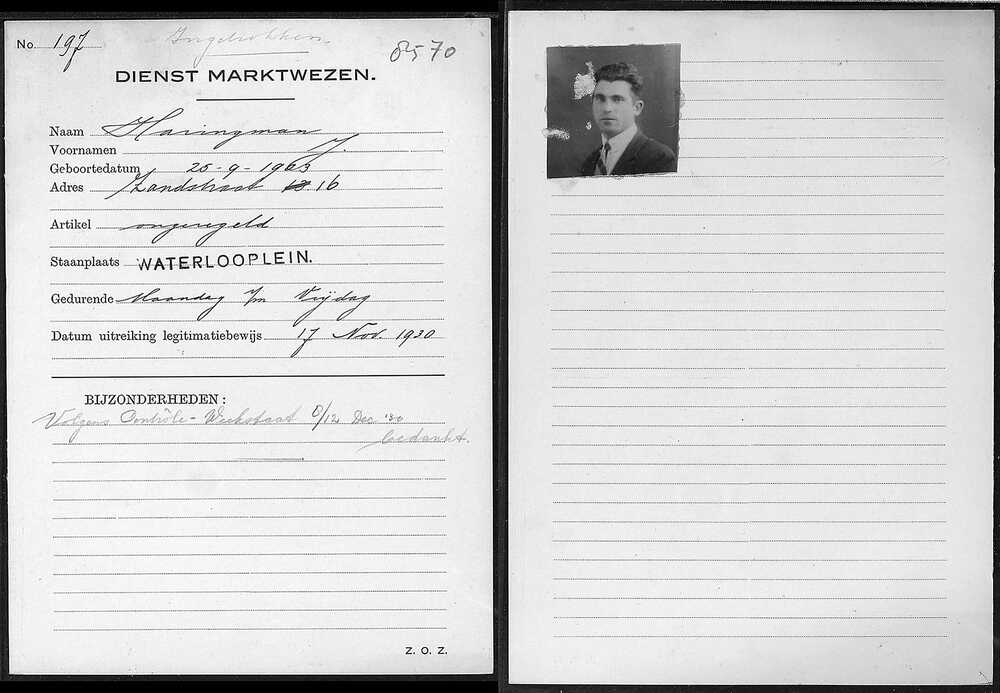 No 197 Ingetrokken 8570
DIENST MARKTWEZEN.
Naam Haringman
Voornamen J.
Geboortedatum 25-9-1903
Adres Zandstraat 13. 16
Artikel ongeregeld
Staanplaats WATERLOOPLEIN.
Gedurende Maandag t/m Vrijdag
Datum uitreiking legitimatiebewijs 17 Nov. 1930
BIJZONDERHEDEN:
Volgens Contrôle-Weekstaat 8/12 Dec '30
bedankt.
Z. O. Z.